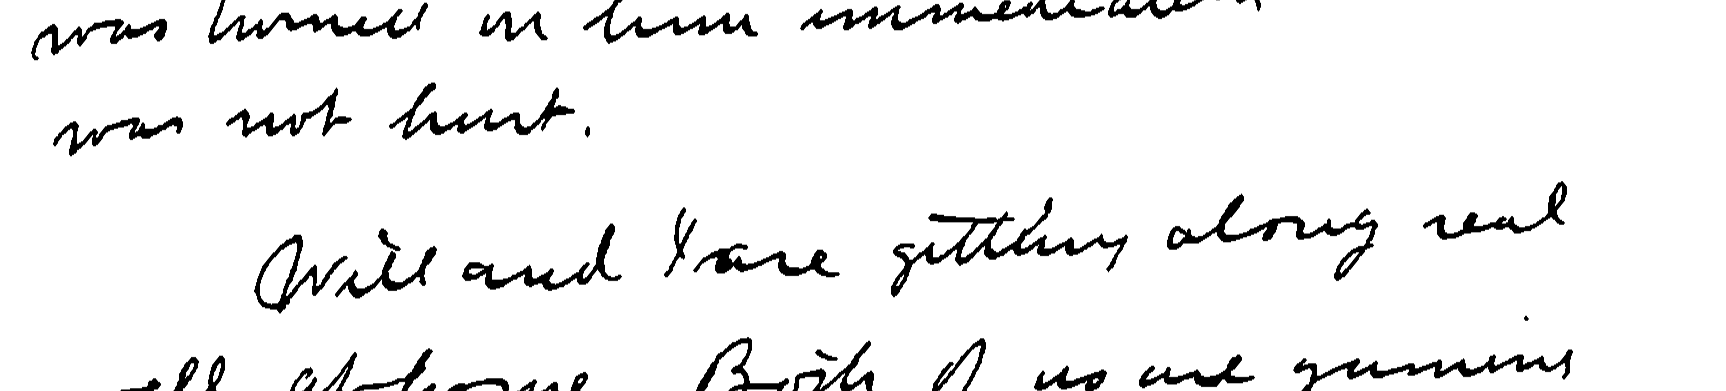 was turned on him immediately
was not hurt.
Will and I are getting along real
well at home. Both of us are gaining